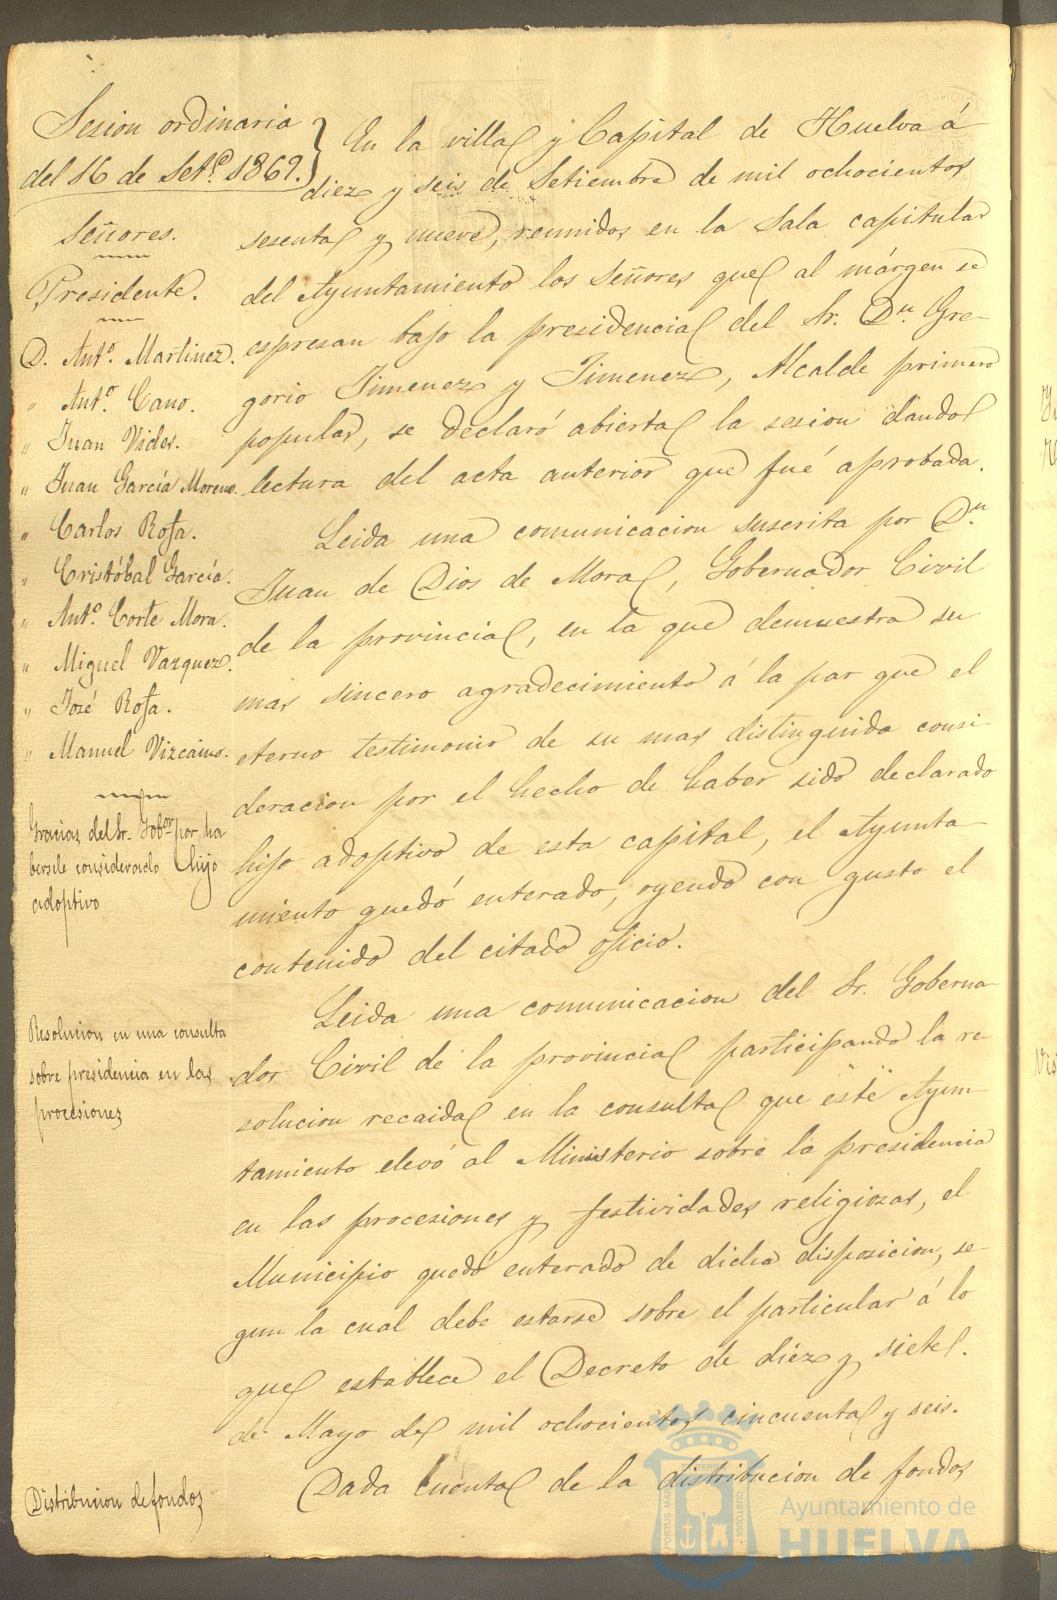 Sesion ordinaria
del 16 de Set.e 1869.
Señores.
Presidente.
D. Ant.o Martinez.
" Ant.o Cano.
" Juan Vides.
" Juan García Moreno.
" Carlos Rofa.
" Cristóbal García.
" Ant.o Corte Mora.
" Miguel Vazquez.
" José Rofa.
" Manuel Vizcaino.
Gracias del Sr. Gob.or por ha
bersele considerado hijo
adoptivo
Resolucion en una consulta
sobre presidencia en las
procesiones
Distribucion de fondos
En la villa y Capital de Huelva á
diez y seis de Setiembre de mil ochocientos
sesenta y nueve, reunidos en la Sala capitular
del Ayuntamiento los Señores que al márgen se
espresan bajo la presidencia del Sr. Dn. Gre-
gorio Jimenez y Jimenez, Alcalde primero
popular, se declaró abierta la sesion dando
lectura del acta anterior que fué aprobada.
Leida una comunicacion suscrita por Dn
Juan de Dios de Mora, Gobernador Civil
de la provincia, en la que demuestra su
mas sincero agradecimiento á la par que el
eterno testimonio de su mas distinguida consi
deracion por el hecho de haber sido declarado
hijo adoptivo de esta capital, el Ayunta
miento quedó enterado, oyendo con gusto el
contenido del citado oficio.
Leida una comunicacion del Sr. Goberna
dor Civil de la provincia participando la re-
solucion recaida en la consulta que este Ayun-
tamiento elevó al Ministerio sobre la presidencia
en las procesiones y festividades religiosas, el
Municipio quedó enterado de dicha disposicion, se-
gun la cual debe estarse sobre el particular á lo
que establece el Decreto de diez y siete
de Mayo de mil ochocientos cincuenta y seis.
Dada cuenta de la distribucion de fondos
Ayuntamiento de
HUELVA